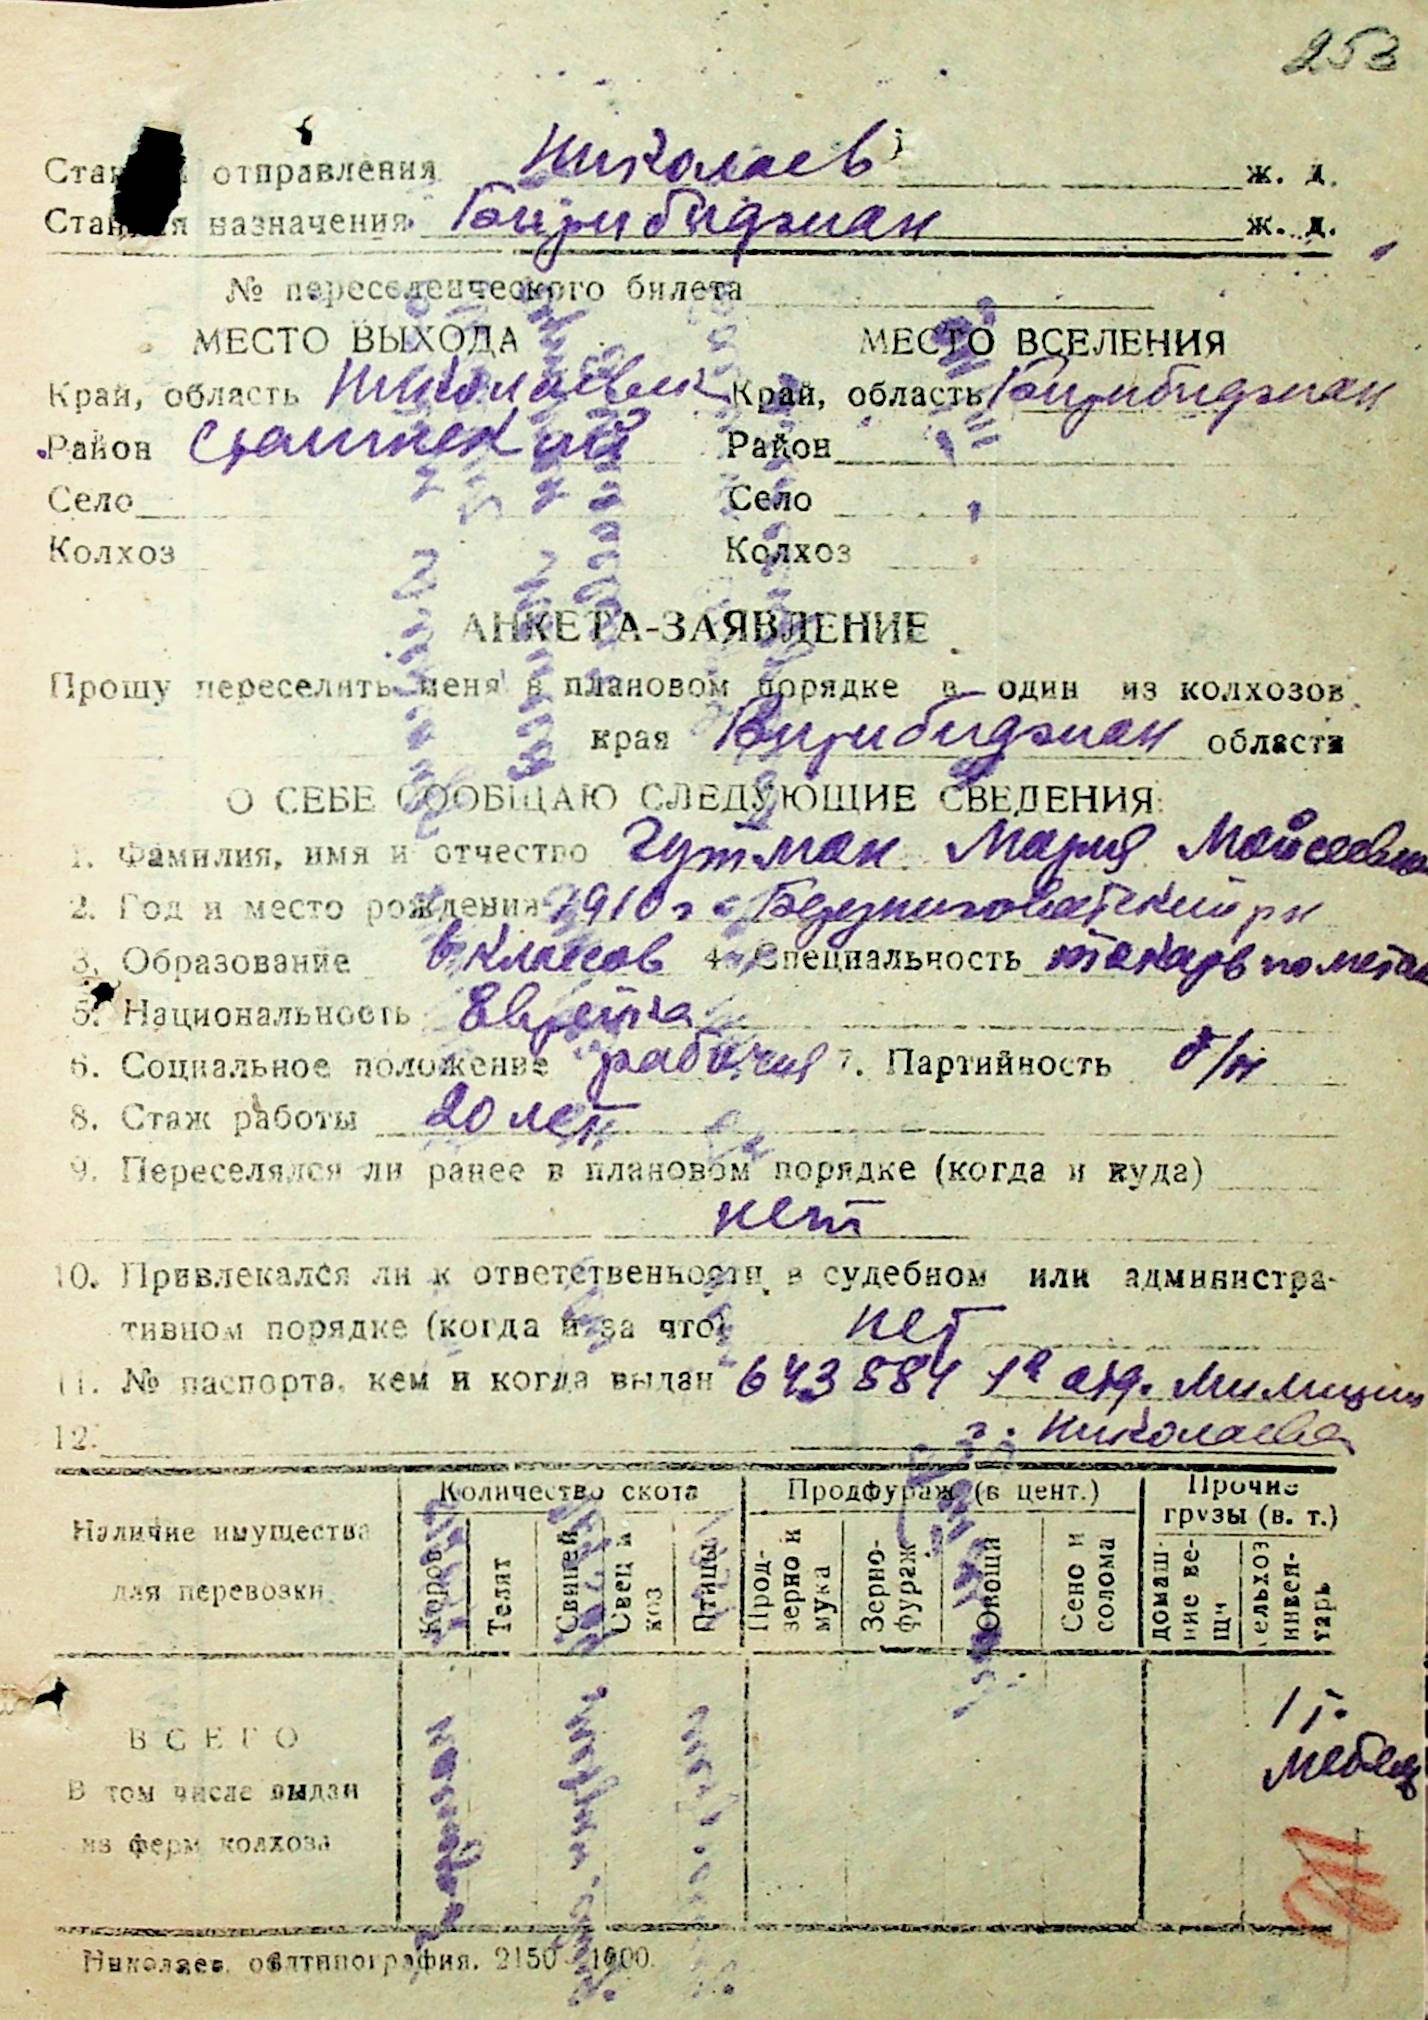 253
Станция отправления Николаев ж. д.
Станция назначения Биробиджан ж. д.
№ переселенческого билета
МЕСТО ВЫХОДА МЕСТО ВСЕЛЕНИЯ
Край, область Николаевск Край, область Биробиджан
Район Сталинский Район
Село Село
Колхоз Колхоз
АНКЕТА-ЗАЯВЛЕНИЕ
Прошу переселить меня в плановом порядке в один из колхозов
края Биробиджан области
О СЕБЕ СООБЩАЮ СЛЕДУЮЩИЕ СВЕДЕНИЯ:
1. Фамилия, имя и отчество Гутман Мария Мойсеевна
2. Год и место рождения 1910 г. Березниговатский рн
3. Образование 6 классов 4. Специальность токарь по метал
5. Национальность Еврейка
6. Социальное положение рабочая 7. Партийность б/п
8. Стаж работы 20 лет
9. Переселялся ли ранее в плановом порядке (когда и куда)
нет
10. Привлекался ли к ответственности в судебном или администра-
тивном порядке (когда и за что) нет
11. № паспорта, кем и когда выдан 643884 1е отд. Милиции
12. г. Николаева
Количество скота Продфураж (в цент.) Прочие
грузы (в. т.)
Наличие имущества
для перевозки
Коров Телят Свиней Овец и коз Птицы Прод-зерно и мука Зерно-фураж Овощи Сено и солома домаш-ние ве-щи сельхоз инвен-тарь
ВСЕГО 1 т.
В том числе выдан мебель
из ферм колхоза
Николаев, облтипография. 2150—1000.